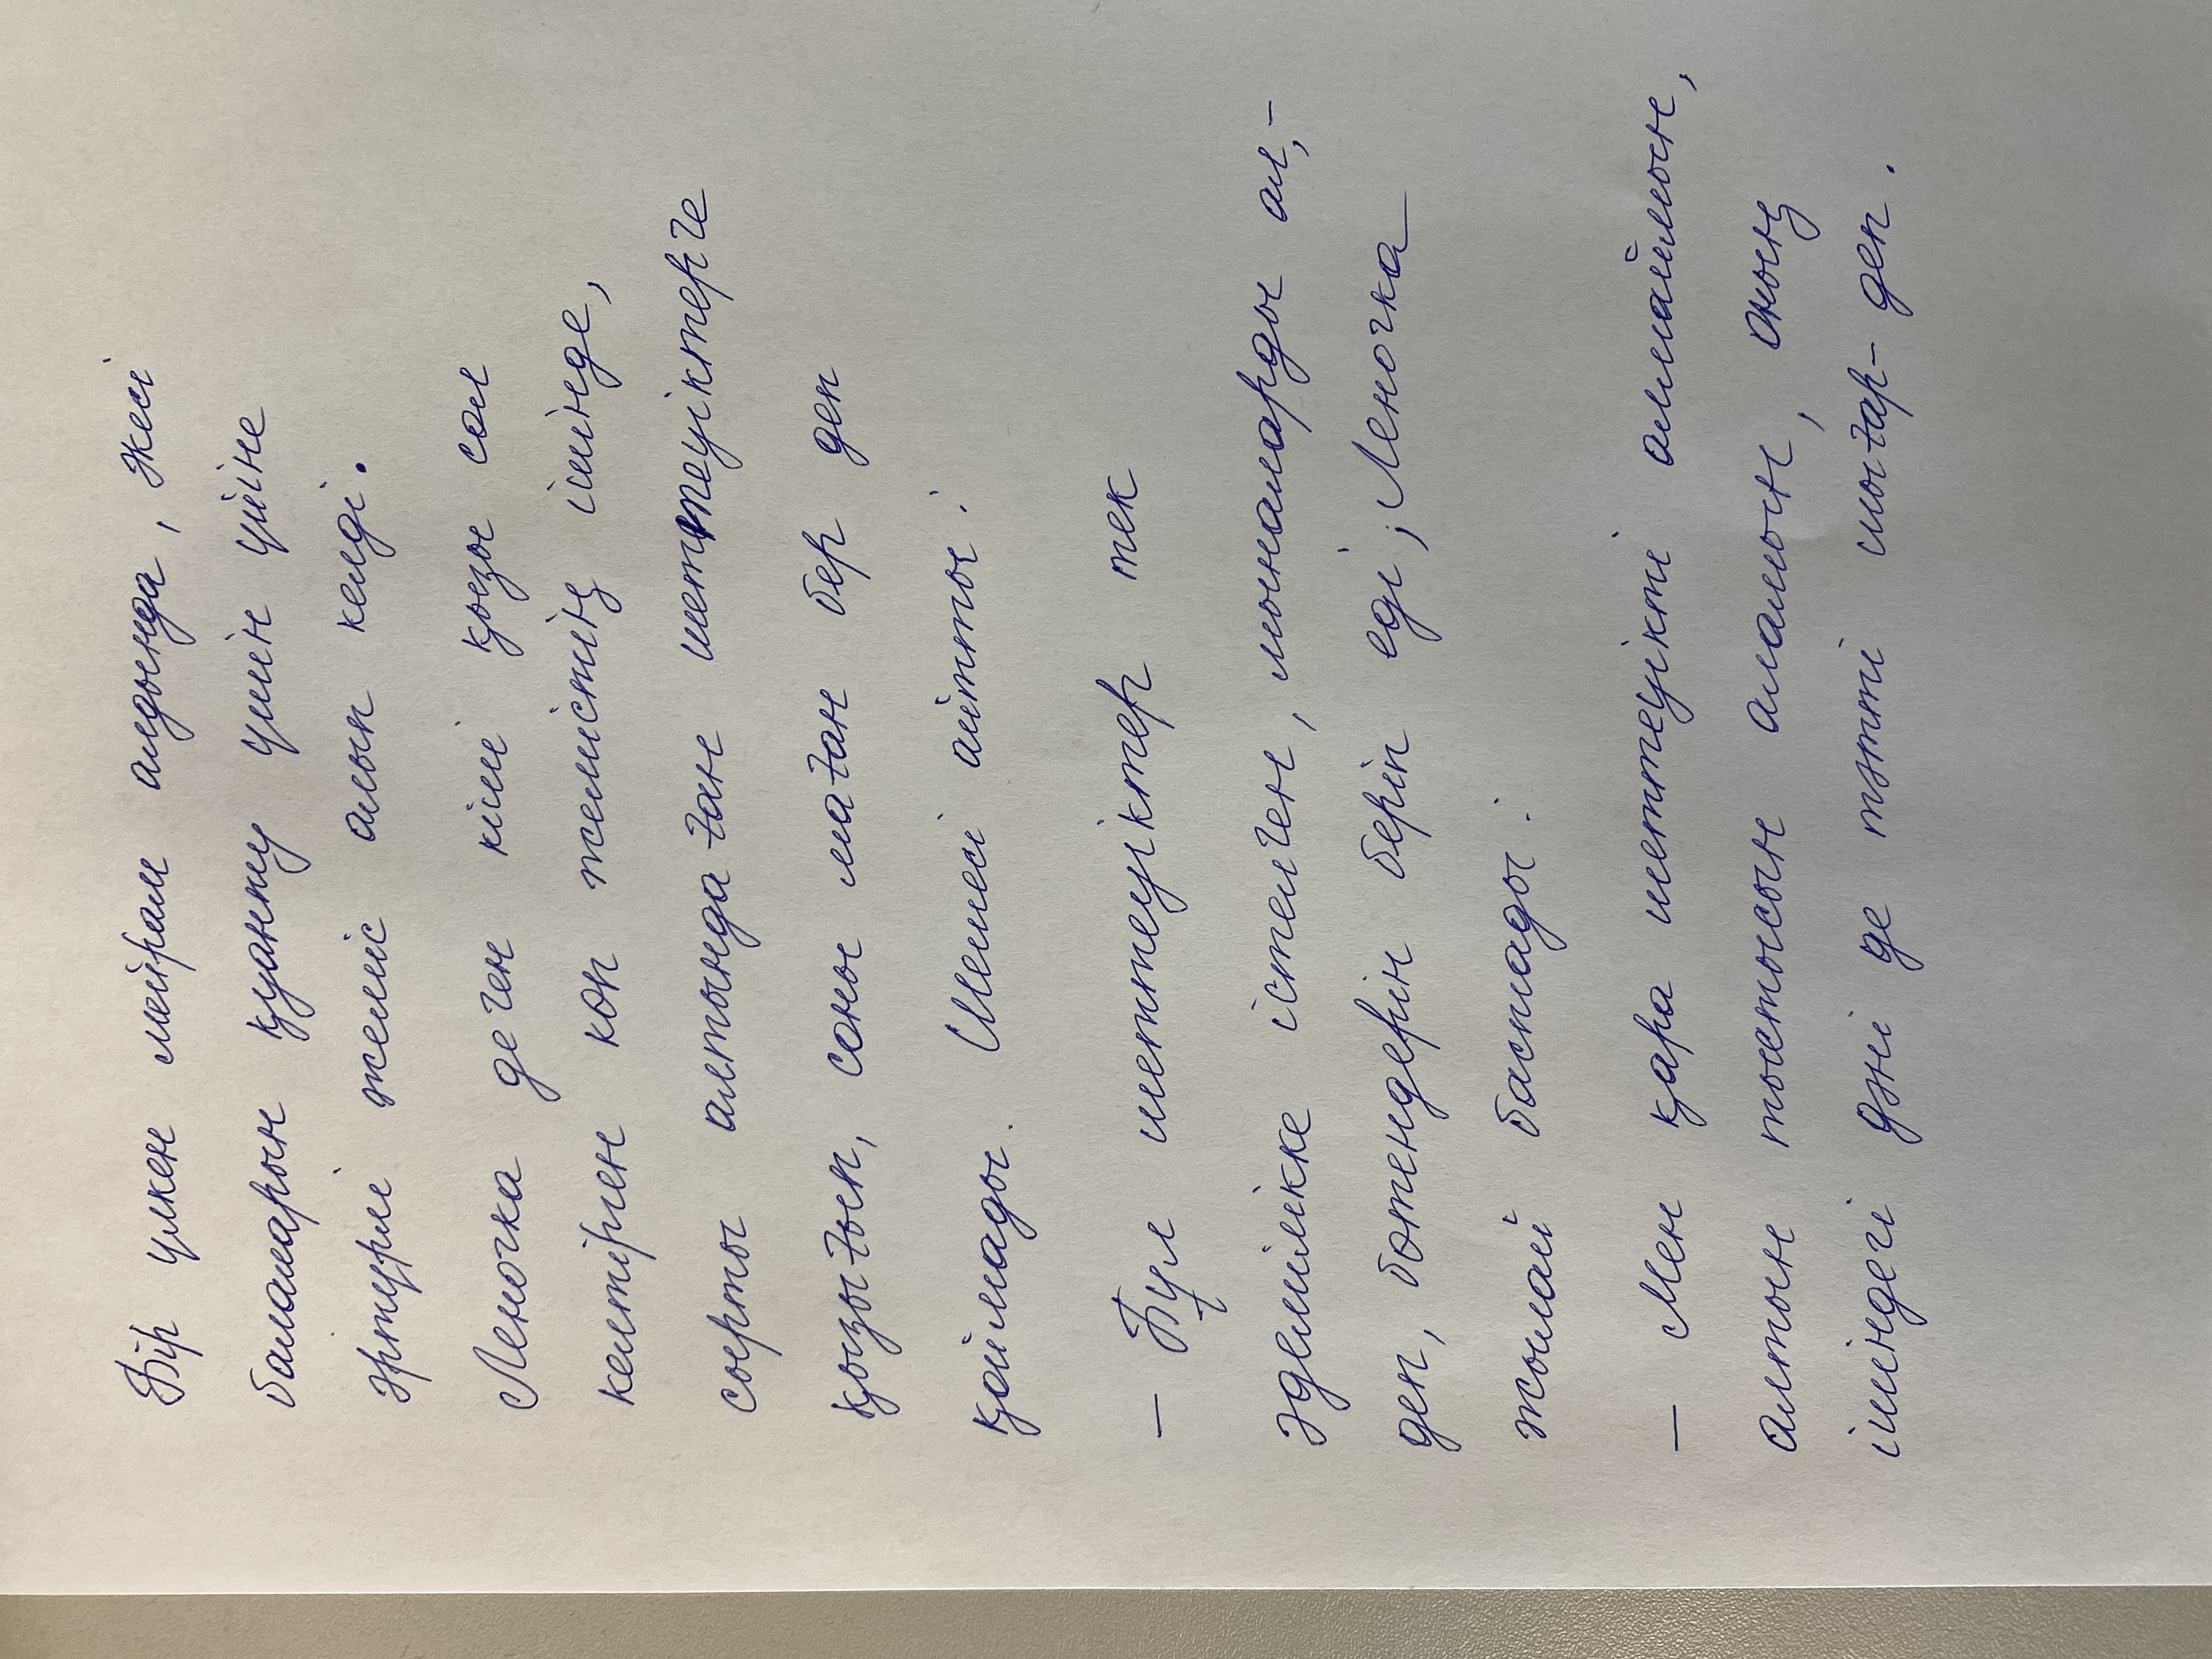 Бір үлкен мейрам алдында, Әкесі
балаларын қуанту үшін үйіне
әртүрлі жеміс алып келді.
Леночка деген кіші қызы сол
келтірген көп жемістің ішінде,
сырты алтындаған шеттеуіктерге
қызығып, соны маған бер деп
қоймады. Шешесі айтты:
– Бұл шеттеуіктер тек
әдемілікке істелген, мыналарды ал,–
деп, бөтендерін беріп еді; Леночка
жылай бастады:
– Мен қара шеттеуікті алмаймын,
алтын тыстысын аламын, оның
ішіндегі дәні де тәтті шығар– деп.